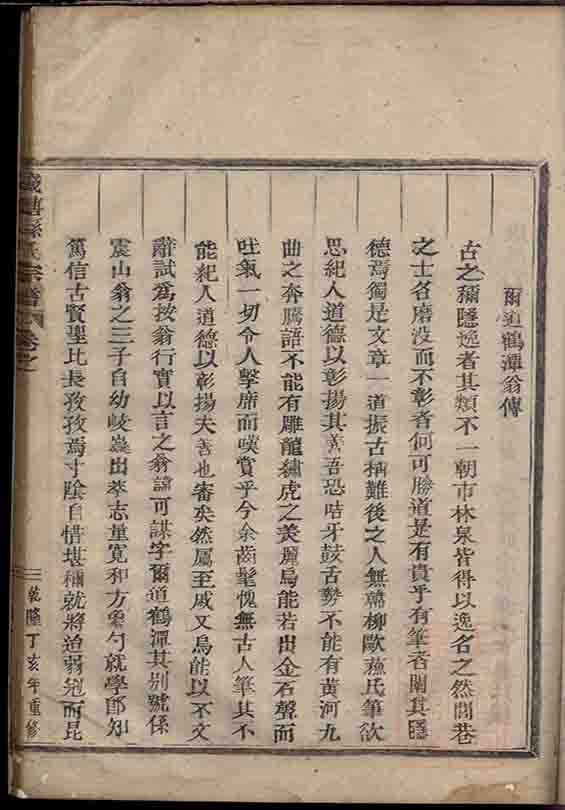 爾道鶴潭翁傳
古之稱隱逸者其類不一朝市林泉皆得以逸名之然閭巷
之士名磨没而不彰者何可勝道是有貴乎有筆者闡其隱
德焉獨是文章一道振古稱難後之人無韓柳歐蘇氏筆欲
思紀人道德以彰揚其善吾恐咭牙鼓舌勢不能有黄河九
曲之奔騰語不能有雕龍繡虎之美麗烏能若出金石聲而
吐氣一切令人擊席而嘆賞乎今余齒髦愧無古人筆其不
能紀人道德以彰揚夫善也審矣然屬至戚又烏能以不文
辭試爲按翁行實以言之翁諱可謀字爾道鶴潭其别號係
震山翁之三子自幼崚嶒出萃志量寛和方象勺就學即知
篤信古賢聖比長孜孜焉寸陰自惜堪稱就將迨弱冠而昆
孫氏宗譜 卷之
乾隆丁亥年重修